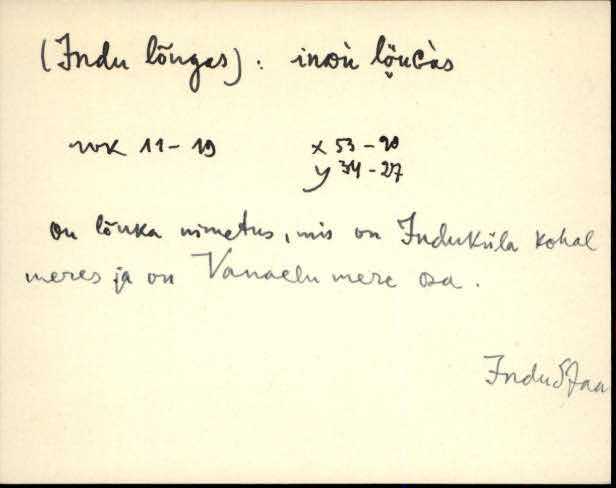 (Indu lõngas). inᴅù lȭ̬nɢ̀às
nvk 11-19 x 53-90
y 34-27
on lõuka nimetus, mis on Induküla kohal
meres ja on Vanaelu mere osa.
Indu Jaa